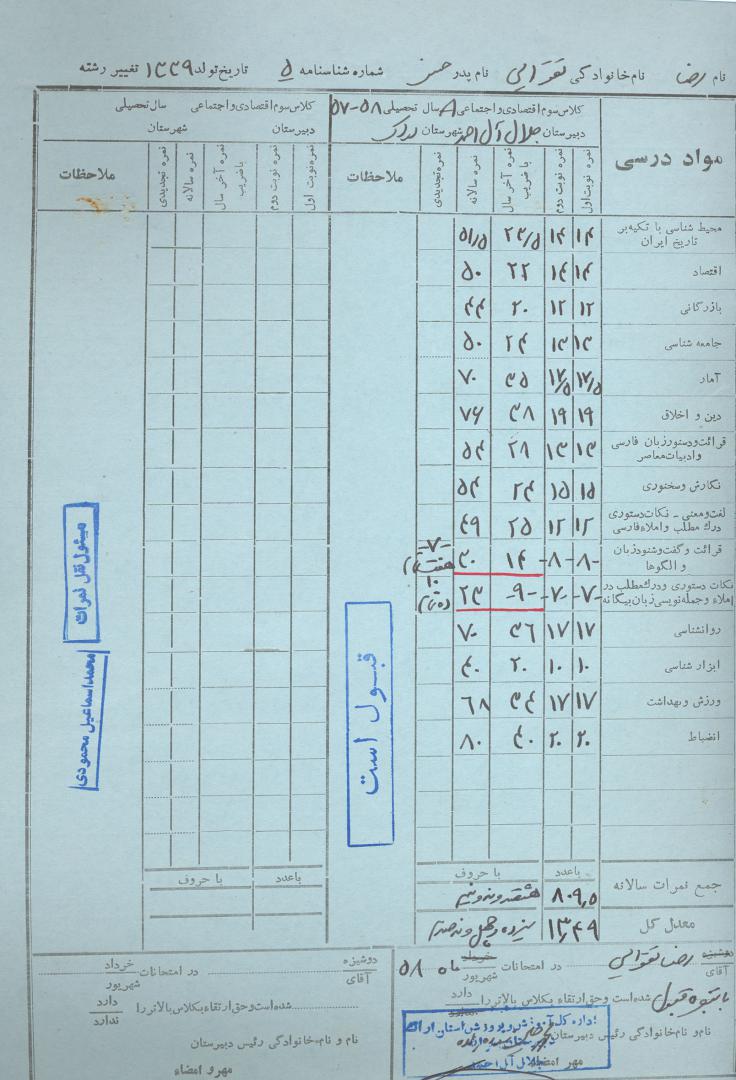 نام رضا نام خانوادگی تقوائی نام پدر حسن شماره شناسنامه ۵ تاریخ تولد ۱۳۳۹ تغییر رشته
کلاس سوم اقتصادی و اجتماعی ۸ سال تحصیلی ۵۸-۵۷
دبیرستان جلال آل احمد شهرستان اراک
کلاس سوم اقتصادی و اجتماعی سال تحصیلی
دبیرستان شهرستان
مواد درسی نمره نوبت اول نمره نوبت دوم نمره آخر سال با ضریب نمره سالانه نمره تجدیدی ملاحظات
نمره نوبت اول نمره نوبت دوم نمره آخر سال با ضریب نمره سالانه نمره تجدیدی ملاحظات
محیط شناسی با تکیه بر تاریخ ایران ۱۴ ۱۴ ۲۳/۵ ۵۱/۵
اقتصاد ۱۴ ۱۴ ۲۲ ۵۰
بازرگانی ۱۲ ۱۲ ۲۰ ۴۴
جامعه شناسی ۱۳ ۱۳ ۲۴ ۵۰
آمار ۱۷/۵ ۱۷/۵ ۳۵ ۷۰
دین و اخلاق ۱۹ ۱۹ ۳۸ ۷۶
قرائت و دستور زبان فارسی و ادبیات معاصر ۱۳ ۱۳ ۲۸ ۵۴
نگارش و سخنوری ۱۵ ۱۵ ۲۴ ۵۴
لغت و معنی - نکات دستوری درک مطلب و املاء فارسی ۱۲ ۱۲ ۲۵ ۴۹
قرائت و گفت و شنود زبان و الگوها -۸- -۸- ۱۴ ۳۰ -۷- هفت تمام
نکات دستوری و درک مطلب در املاء و جمله نویسی زبان بیگانه -۷- -۷- -۹- ۲۳ ۱۰ ده تمام
روانشناسی ۱۷ ۱۷ ۳۶ ۷۰
ابزار شناسی ۱۰ ۱۰ ۲۰ ۴۰
ورزش و بهداشت ۱۷ ۱۷ ۳۴ ۶۸
انضباط ۲۰ ۲۰ ۴۰ ۸۰
قبول است
مسئول نقل نمرات
محمد اسماعیل محمودی
باعدد با حروف
باعدد با حروف
جمع نمرات سالانه ۸۰۹,۵ هشتصد و نه و نیم
معدل کل ۱۳/۴۹ سیزده و چهل و نه صدم
دوشیزه
آقای رضا تقوائی در امتحانات خرداد
شهریور ماه ۵۸
با نتیجه قبول شده است و حق ارتقاء بکلاس بالاتر را دارد
ندارد
نام و نام خانوادگی رئیس دبیرستان
مهر و امضاء
اداره کل آموزش و پرورش استان
جلال آل احمد
دوشیزه
آقای در امتحانات خرداد
شهریور
شده است و حق ارتقاء بکلاس بالاتر را دارد
ندارد
نام و نام خانوادگی رئیس دبیرستان
مهر و امضاء